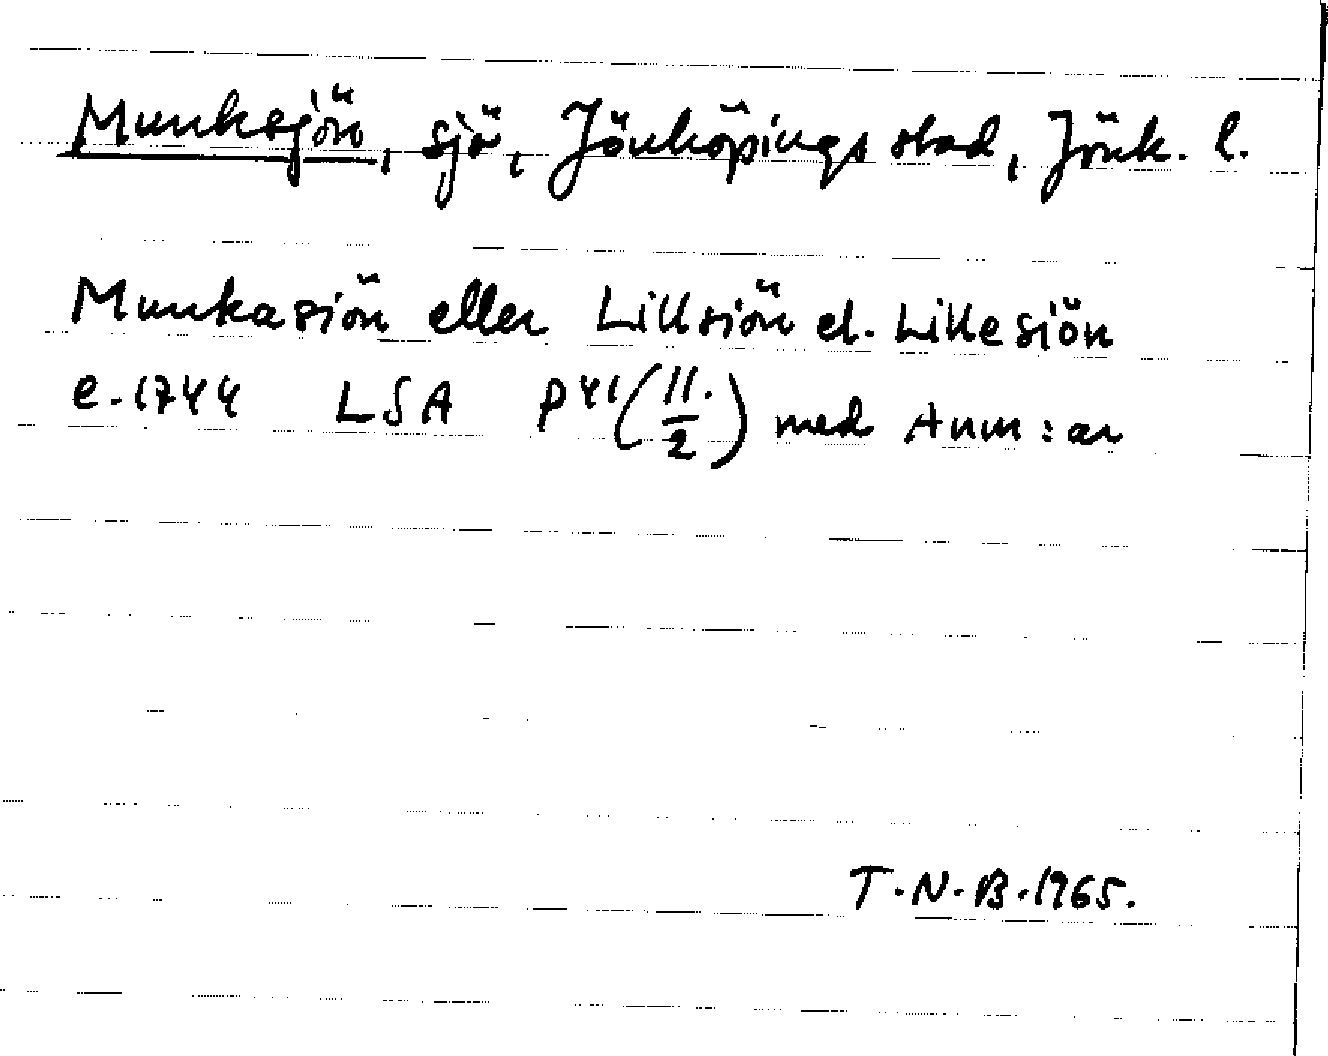 Munksjön, sjö, Jönköpings stad, Jönk. l.
Munkasiön eller Lillsiön el. Lillesiön
e. 1744 LSA P41 (11./2) med Anm:ar
T.N.B. 1965.